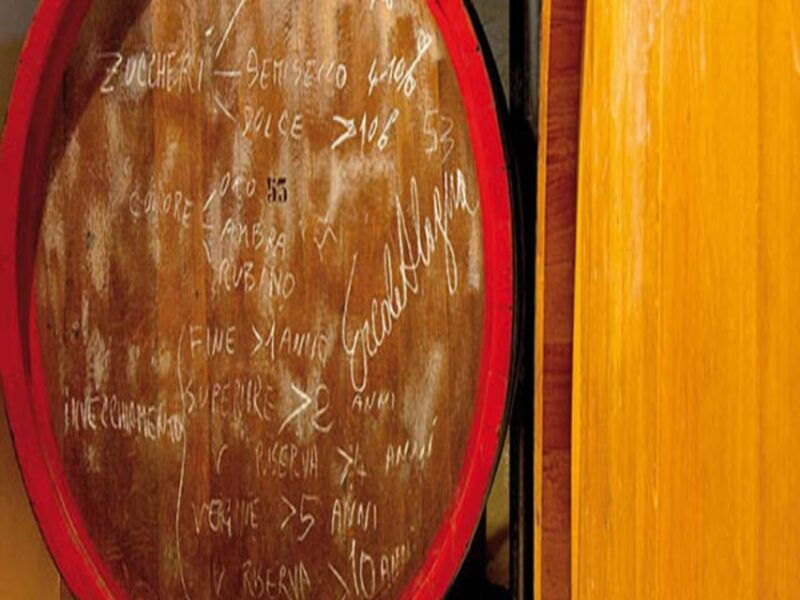 ZUCCHERI SEMISECCO 4-10%
DOLCE >10%
53
COLORE ORO 53
AMBRA
RUBINO
Ercole Alagna
FINE >1 ANNO
INVECCHIAMENTO SUPERIORE >2 ANNI
V RISERVA >4 ANNI
VERGINE >5 ANNI
V RISERVA >10 ANNI